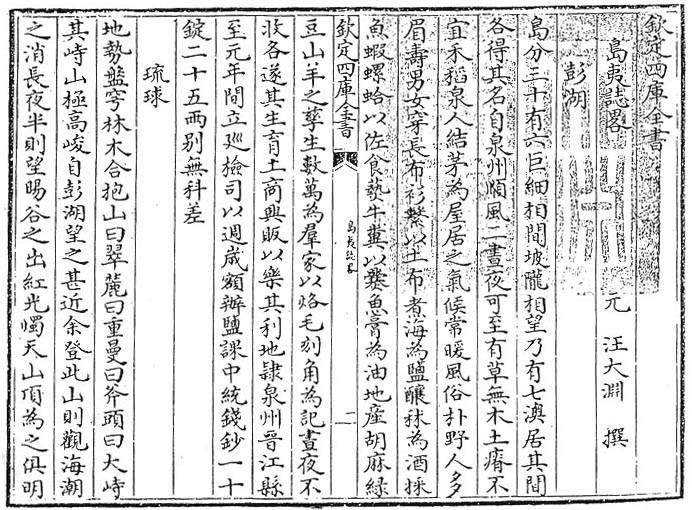 欽定四庫全書
島夷誌略
元 汪大淵 撰
彭湖
島分三十有六巨細相間坡隴相望乃有七澳居其間
各得其名自泉州順風二晝夜可至有草無木土瘠不
宜禾稻泉人結茅為屋居之氣候常暖風俗朴野人多
眉壽男女穿長布衫繫以土布煮海為鹽釀秫為酒採
魚蝦螺蛤以佐食爇牛糞以爨魚膏為油地産胡麻緑
欽定四庫全書
島夷誌畧
一
豆山羊之孳生數萬為羣家以烙毛刻角為記晝夜不
收各遂其生育土商興販以樂其利地𨽻泉州晉江縣
至元年間立巡檢司以週歳額辦鹽課中統錢鈔一十
錠二十五兩别無科差
琉球
地勢盤穹林木合抱山曰翠麓曰重曼曰斧頭曰大峙
其峙山極高峻自彭湖望之甚近余登此山則觀海潮
之消長夜半則望暘谷之出紅光燭天山頂為之俱明